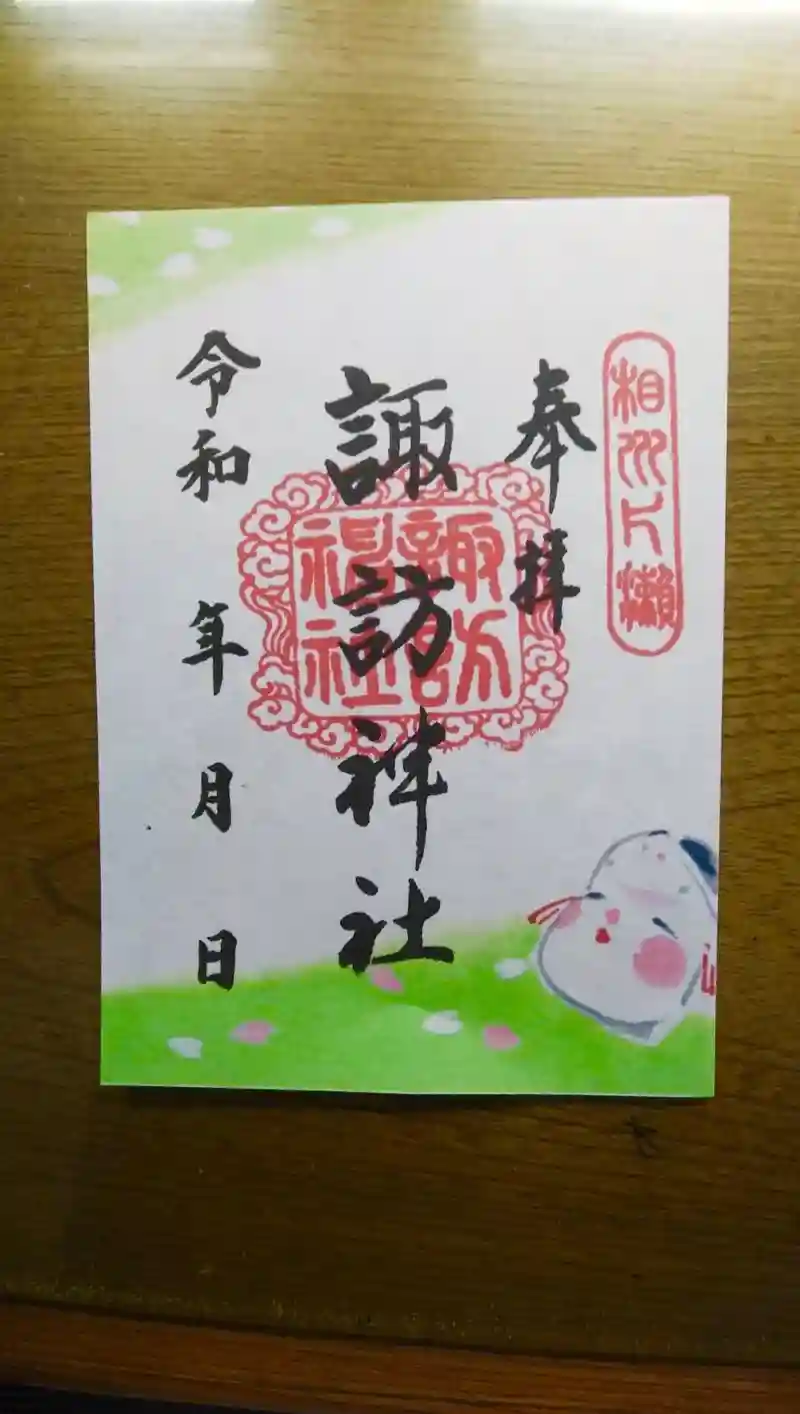 相州人瀬
奉拝
諏訪神社
諏訪神社
令和 年 月 日